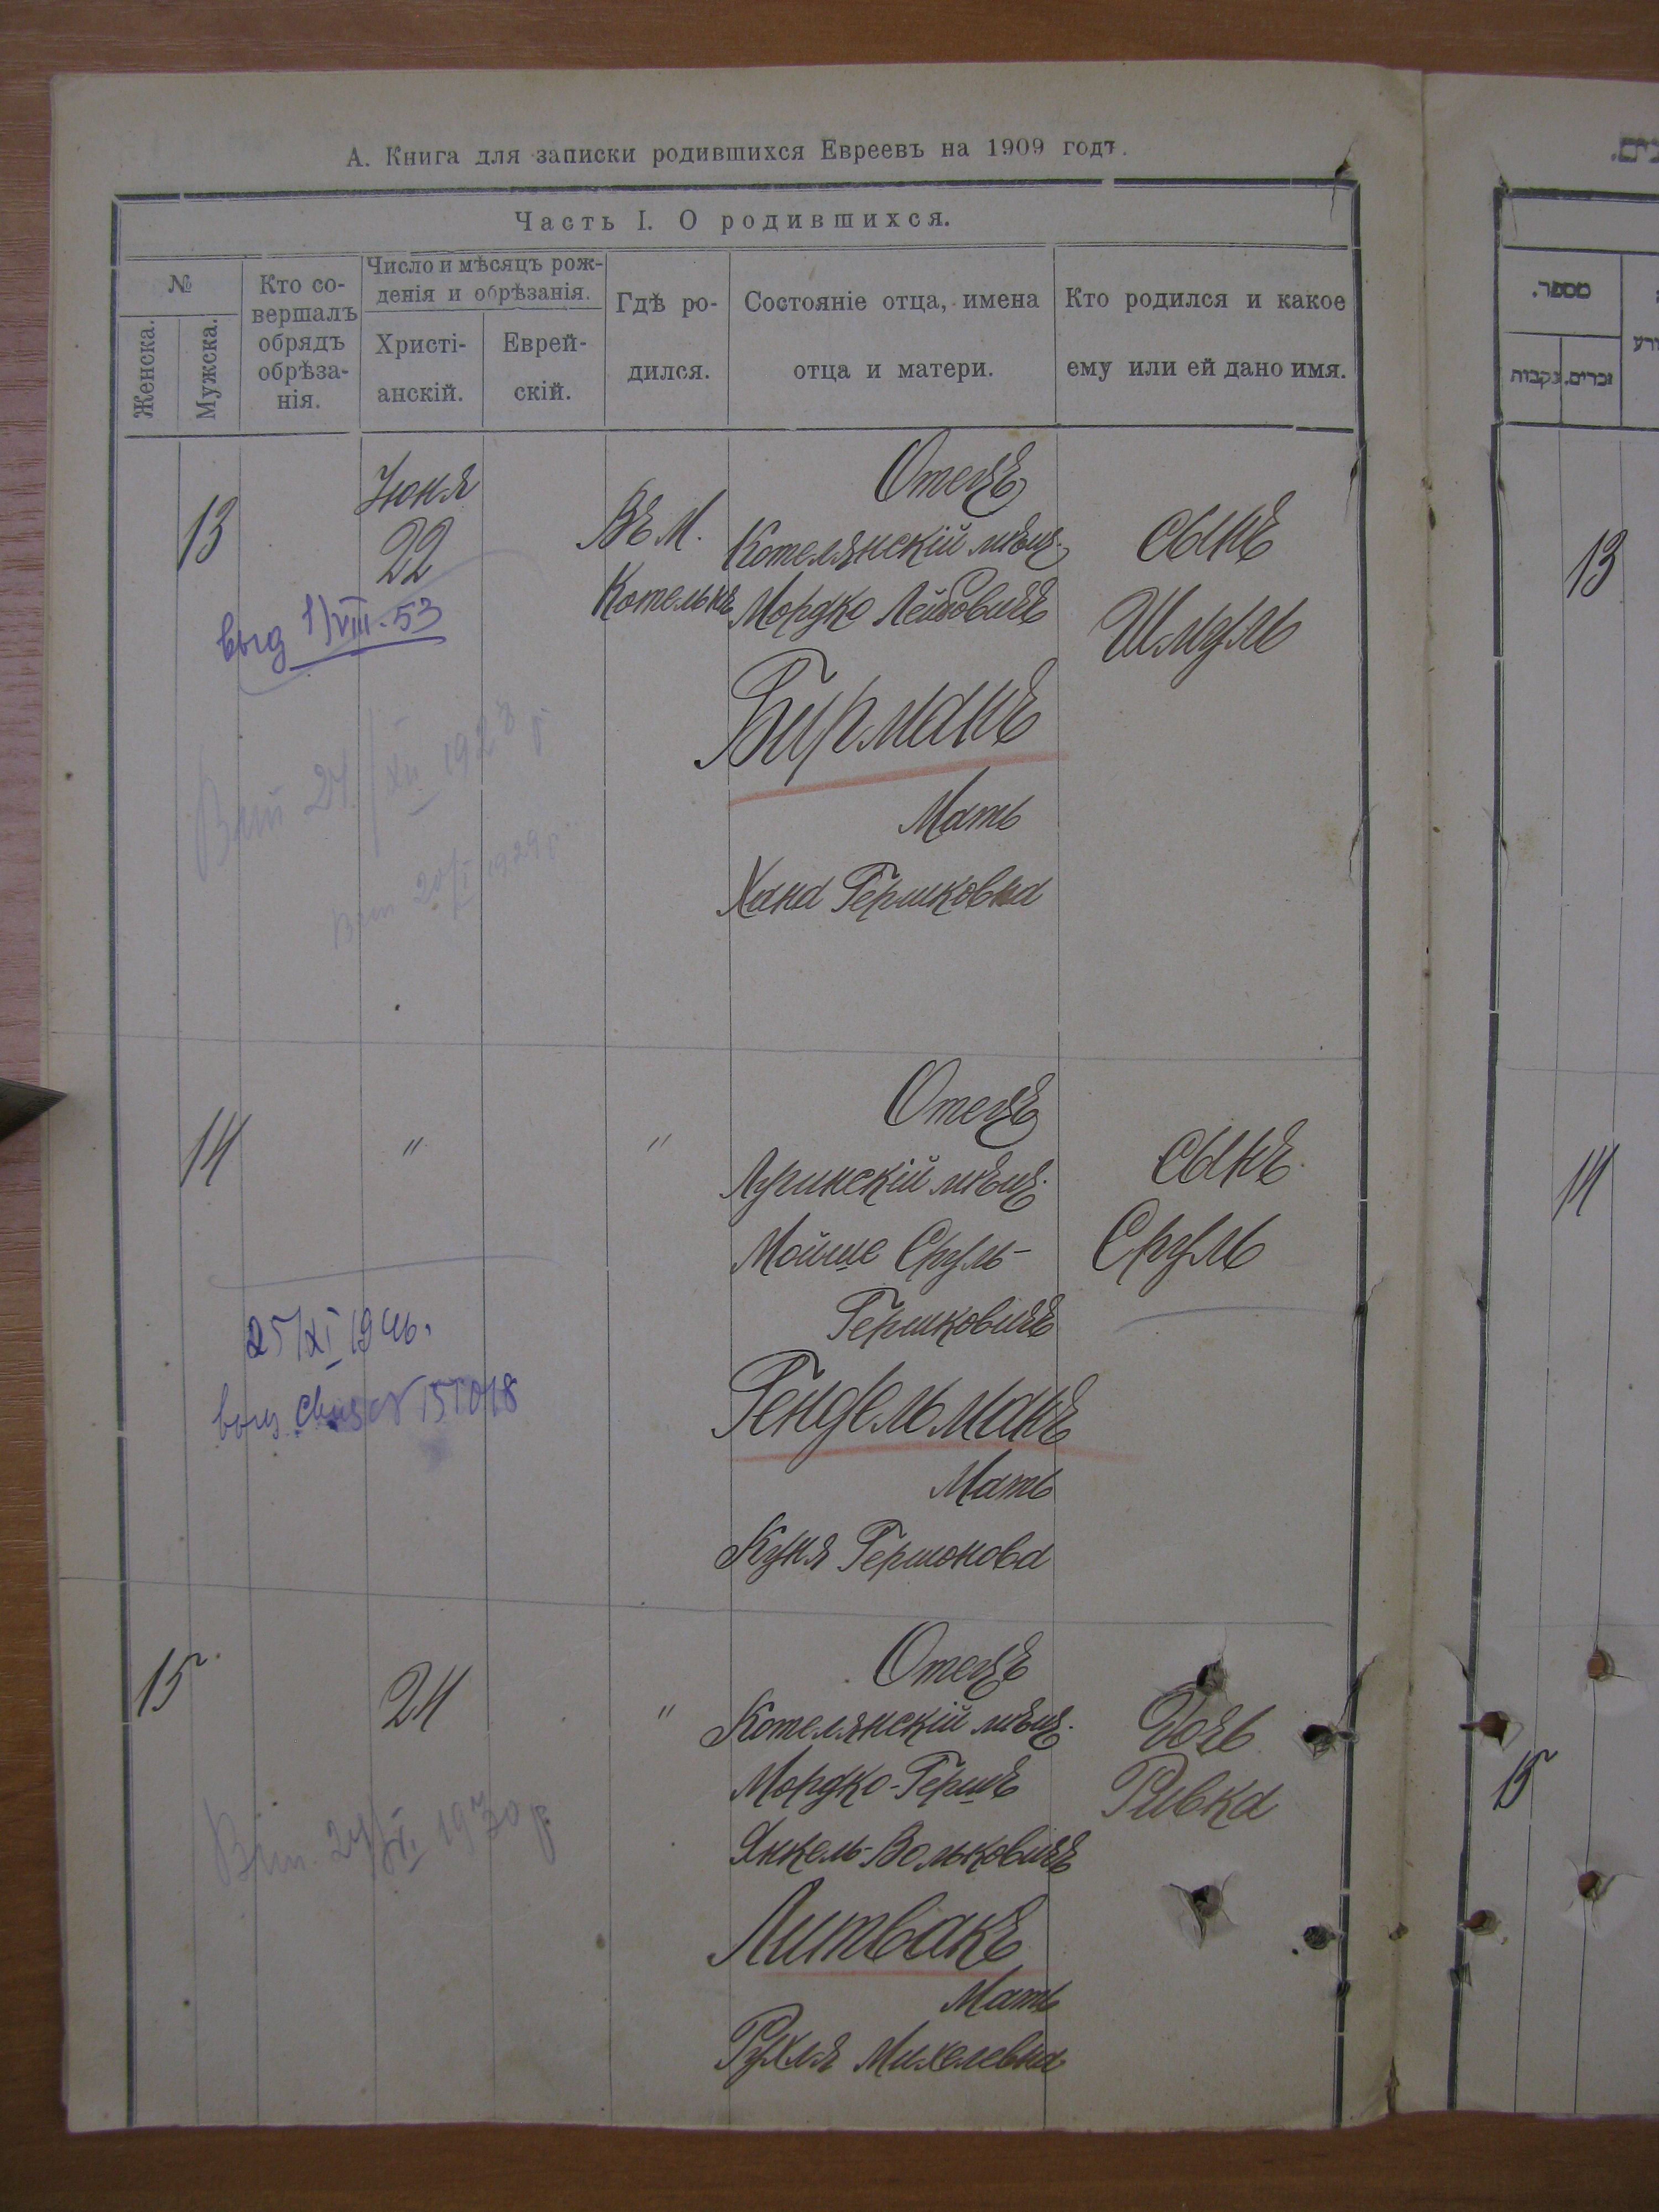 А. Книга для записки родившихся Евреевъ на 1909 годъ.
Часть I. О родившихся.
№
Женска.
Мужска.
Кто со-
вершалъ
обрядъ
обрѣза-
нія.
Число и мѣсяцъ рож-
денія и обрѣзанія.
Христі-
анскій.
Еврей-
скій.
Гдѣ ро-
дился.
Состояніе отца, имена
отца и матери.
Кто родился и какое
ему или ей дано имя.
מספר.
זכרים.
נקבות
13
Іюня
22
Въ М.
Котельнѣ
Отецъ
Котелянскій мѣщ.
Мордко Лейбовичъ
Бирманъ
Мать
Хана Гершковна
сынъ
Шмуль
13
выд 1/VIII-53
24/XII 1928 г
20/I 1929 г
14
"
"
Отецъ
Лугинскій мѣщ.
Мойше Сруль-
Гершковичъ
Гендельманъ
Мать
Куня Гершонова
сынъ
Сруль
14
25/XI 1946.
15
24
"
Отецъ
Котелянскій мѣщ.
Мордко-Гершъ
Янкель-Вольковичъ
Литвакъ
Мать
Рухля Михелевна
Дочь
Ривка
15